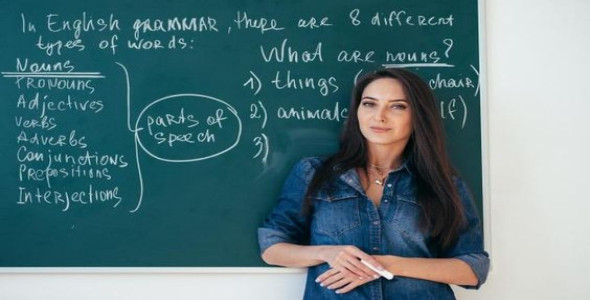 In English grammar, there are 8 different
types of words:
Nouns
Pronouns
Adjectives
Verbs
Adverbs
Conjunctions
Prepositions
Interjections
parts of
speech
What are nouns?
1) things ( chair)
2) animals lf)
3)